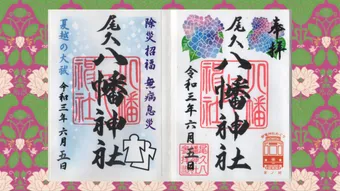 奉拝
尾久
八幡神社
令和三年六月五日
八幡神社
尾久八幡
除災招福 無病息災
尾久
八幡神社
令和三年六月五日
夏越の大祓